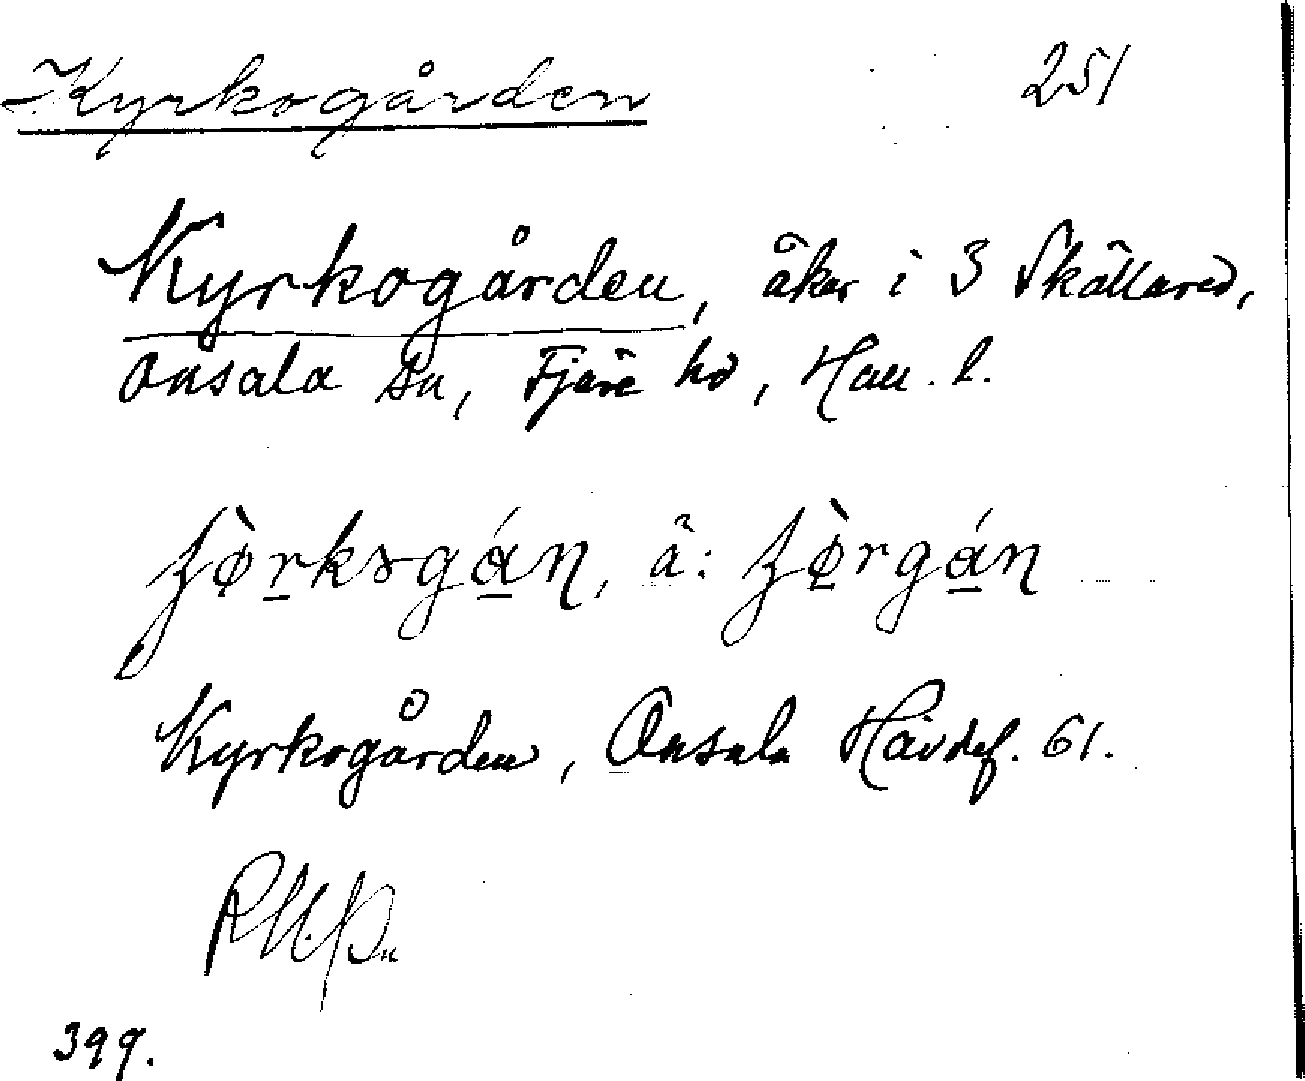 Kyrkogården 251
Kyrkogården, åker i 3 Skällared,
Onsala sn, Fjäre hd, Hall. l.
å:
Kyrkogården, Onsala Hävdef. 61.
399.